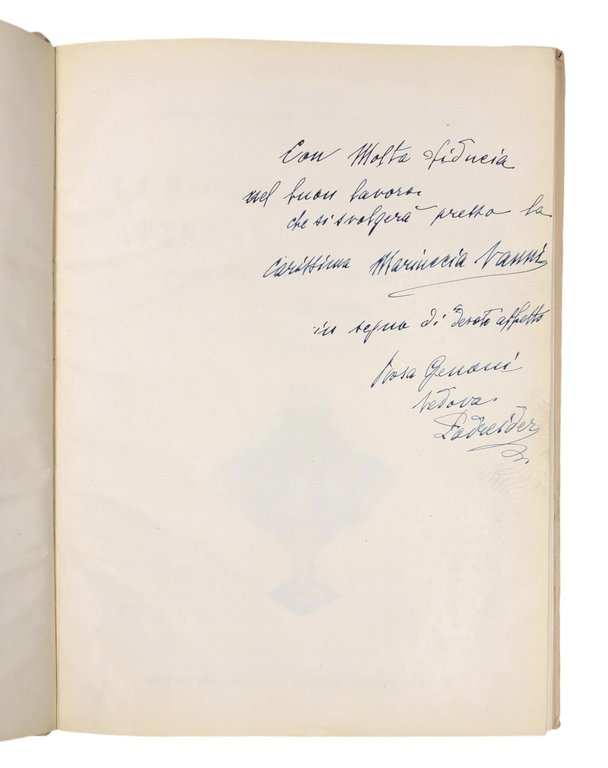 Con Molta fiducia
nel buon lavoro
che si svolgerà presso la
carissima Mariuccia Vanni
in segno di devoto affetto
Rosa Genoni
vedova
Podreider